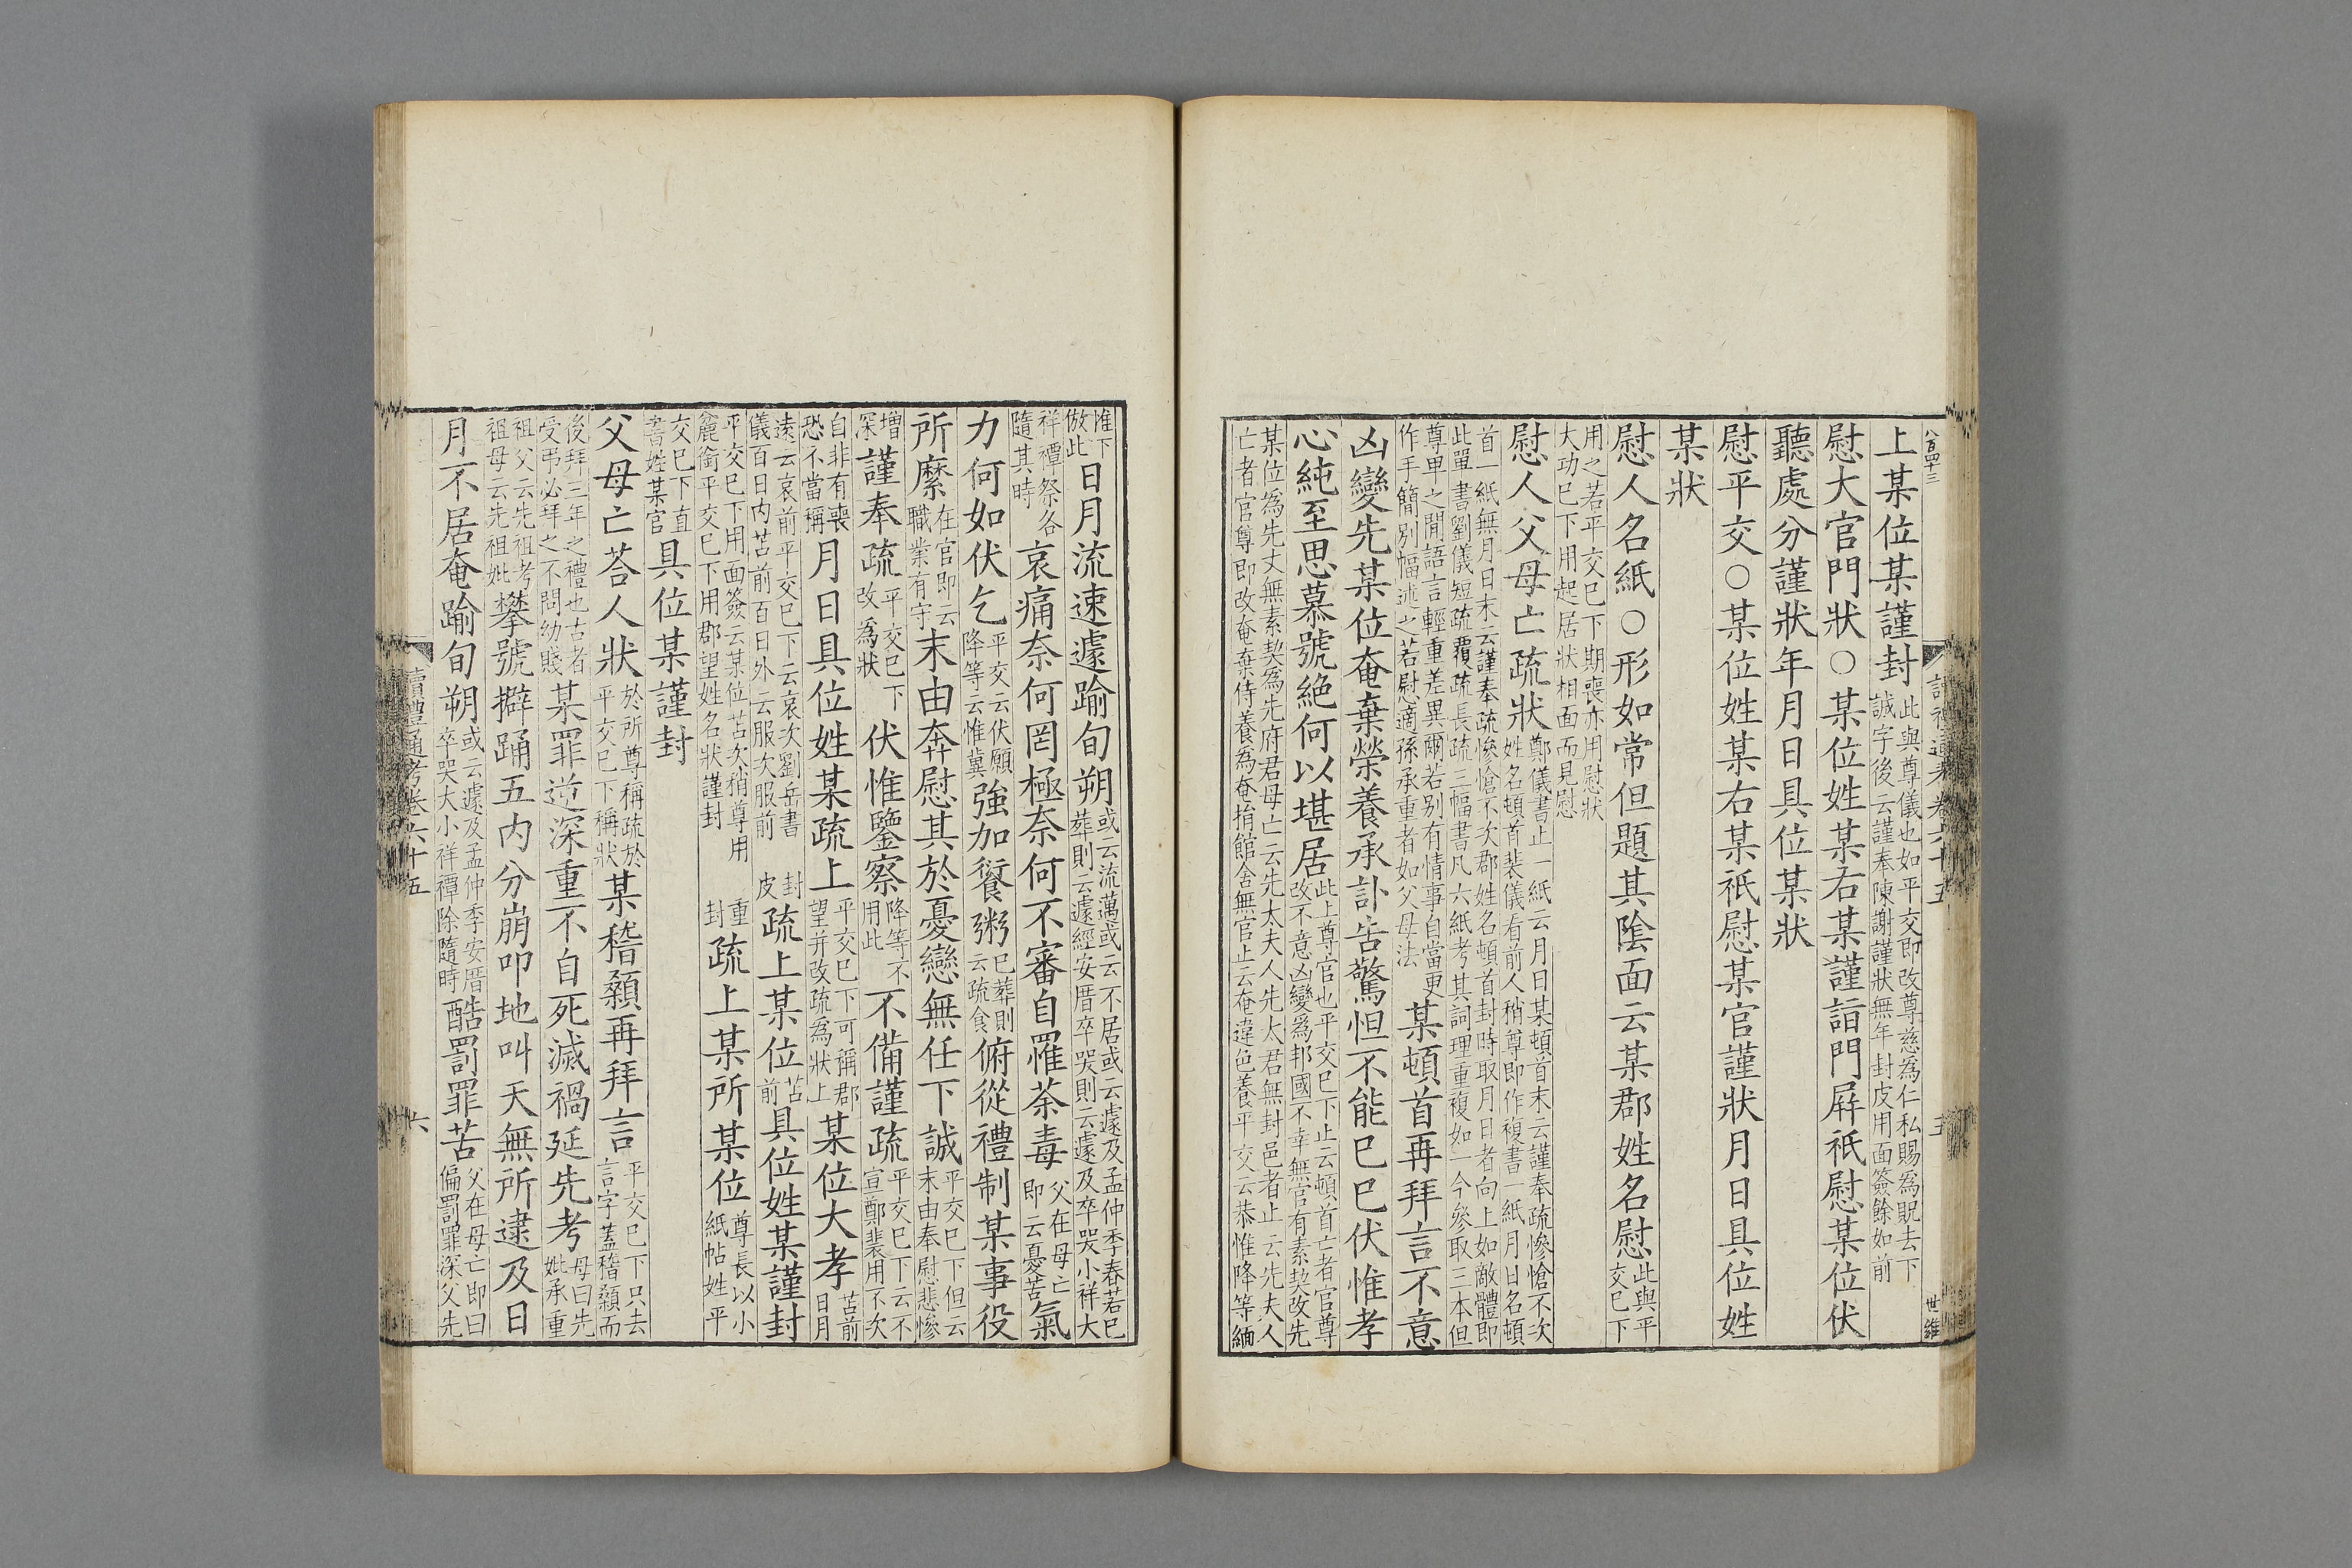 八百四十三
上某位某謹封此與尊儀也如平交即改尊慈為仁私賜為貺去下誠字後云謹奉陳謝謹狀無年封皮用面簽餘如前
慰大官門狀○某位姓某右某謹詣門屏祇慰某位伏
聽處分謹狀年月日具位某狀
慰平交○某位姓某右某祇慰某官謹狀月日具位姓
某狀
慰人名紙○形如常但題其陰面云某郡姓名慰此與平交已下
用之若平交已下期喪亦用慰狀大功已下用起居狀相面而見慰
慰人父母亡疏狀鄭儀書止一紙云月日某頓首末云謹奉疏慘愴不次姓名頓首裴儀看前人稍尊即作複書一紙月日名頓
首一紙無月日末云謹奉疏慘愴不次郡姓名頓首封時取月日者向上如敵體即此單書劉儀短疏覆疏長疏三幅書凡六紙考其詞理重複如一今參取三本但
尊卑之間語言輕重差異爾若别有情事自當更作手簡別幅述之若慰適孫承重者如父母法某頓首再拜言不意
凶變先某位奄棄榮養承訃告驚怛不能已已伏惟孝
心純至思慕號絕何以堪居此上尊官也平交已下止云頓首亡者官尊改不意凶變為邦國不幸無官有素契改先
某位為先丈無素契為先府君母亡云先太夫人先太君無封邑者止云先夫人亡者官尊即改奄棄侍養為奄捐館舍無官止云奄違色養平交云恭惟降等緬
讀禮通考卷六十五
五
世維
惟下倣此日月流速遽踰旬朔或云流邁或云不居或云遽及孟仲季春若已葬則云遽經安厝卒哭則云遽及卒哭小祥大
祥禫祭各隨其時哀痛奈何罔極奈何不審自罹荼毒父在母亡即云憂苦氣
力何如伏乞平交云伏願降等云惟冀強加餐粥已葬則云疏食俯從禮制某事役
所縻在官即云職業有守末由奔慰其於憂戀無任下誠平交已下但云末由奉慰悲慘
增深謹奉疏平交已下改為狀伏惟鑒察降等不用此不備謹疏平交已下云不宣鄭裴用不次
自非有喪恐不當稱月日具位姓某疏上平交已下可稱郡望并改疏為狀上某位大孝苫前日月
遠云哀前平交已下云哀次劉岳書儀百日内苫前百日外云服次服前封皮疏上某位苫前具位姓某謹封
平交已下用面簽云某位苫次稍尊用麄銜平交已下用郡望姓名狀謹封重封疏上某所某位尊長以小紙帖姓平
交已下直書姓某官具位某謹封
父母亡荅人狀於所尊稱疏於平交已下稱狀某稽顙再拜言平交已下只去言字蓋稽顙而
後拜三年之禮也古者受弔必拜之不問幼賤某罪逆深重不自死滅禍延先考母曰先妣承重
祖父云先祖考祖母云先祖妣攀號擗踊五内分崩叩地叫天無所逮及日
月不居奄踰旬朔或云遽及孟仲季安厝卒哭大小祥禫除隨時酷罰罪苦父在母亡即曰偏罰罪深父先
讀禮通考卷六十五
六